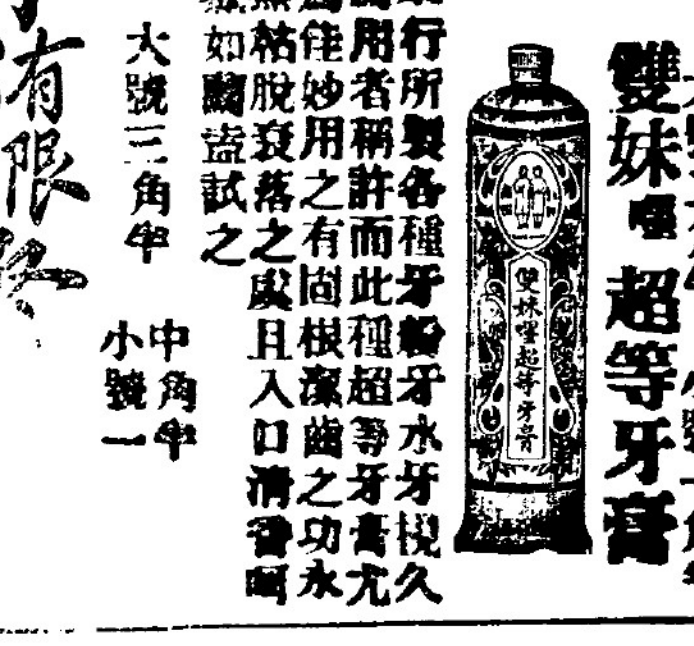 雙妹嘜超等牙膏
雙妹嘜超等牙膏
行所製各種牙粉牙水牙梘久
用者稱許而此種超等牙膏尤
佳妙用之有固根潔齒之功永
枯脫衰落之虞且入口清香呵
如蘭盍試之
大號三角半
中角半
小號一
有限